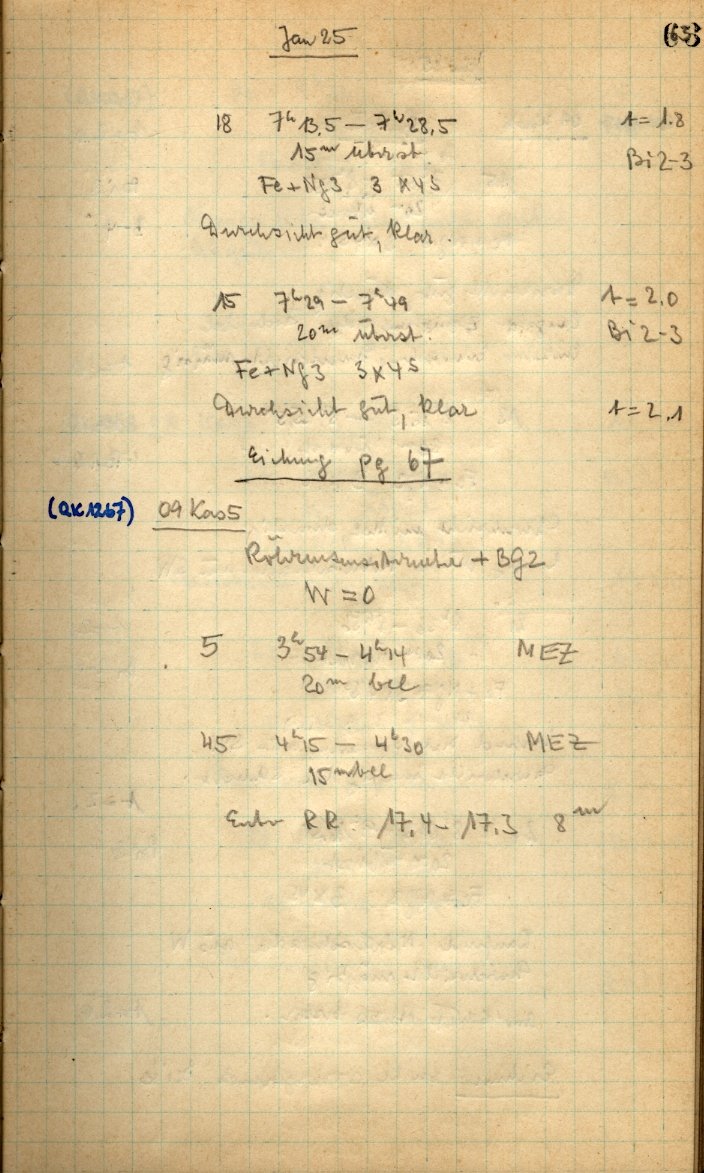 Jan 25
63
18 7h13,5 — 7h28,5 t=1.8
15m überst. Bi 2-3
Fe+Ng3 3x4s
Durchsicht gut, klar.
15 7h29 — 7h49 t=2.0
20m überst. Bi 2-3
Fe+Ng3 3x4s
Durchsicht gut, klar t=2,1
Eichung pg 67
(QK1267) 09 Kas5
+ BG2
W = 0
5 3h54 — 4h14 MEZ
20m bel
45 4h15 — 4h30 MEZ
15m bel
Entw RR. 17,4 — 17,3 8m